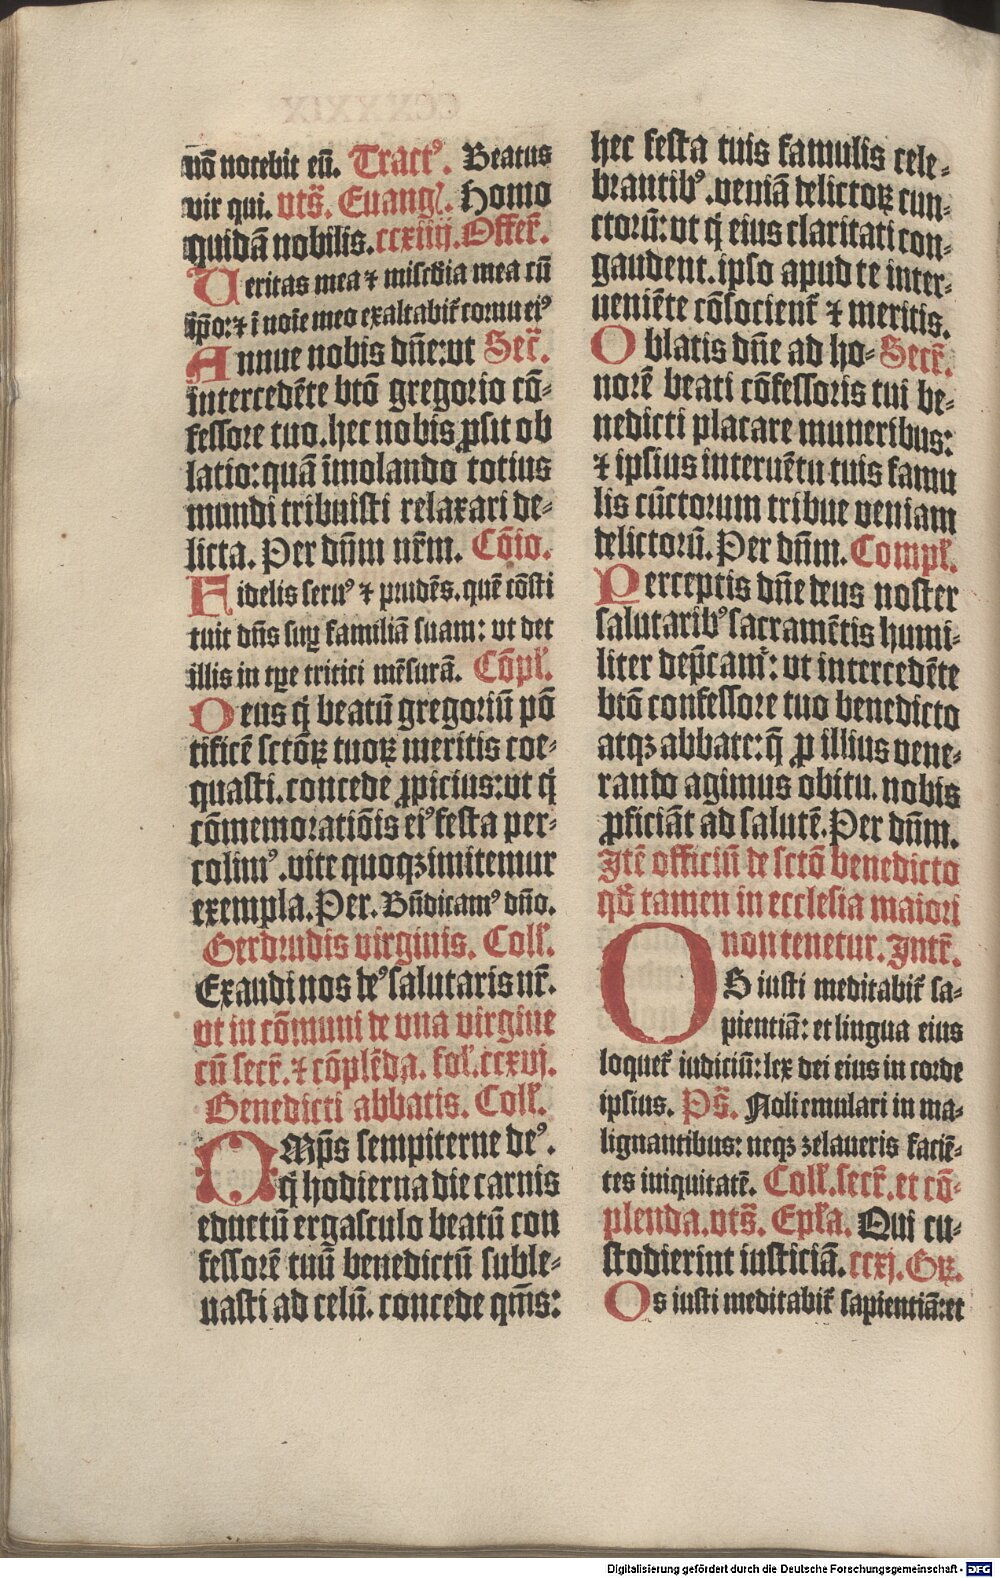 nō nocebit eū. Tractꝰ. Beatus
vir qui. vts̄. Euangl̓. Homo
quidā nobilis. ccxiiij. Offer̄.
Ueritas mea ⁊ misc̄dia mea cū
ip̄o: ⁊ ī noīe meo exaltabit̄ cornu eiꝰ
Annue nobis dn̄e: vt Secr̄.
intercedēte btō gregorio cō-
fessore tuo. hec nobis ꝓsit ob
latio: quā īmolando totius
mundi tribuisti relaxari de-
licta. Per dn̄m nr̄m. Cōio.
Fidelis seruꝰ ⁊ prudēs. quē cōsti
tuit dn̄s suꝑ familiā suam: vt det
illis in tꝑe tritici mēsurā. Cōpl̓.
Deus q̄ beatū gregoriū pō
tificē sctōꝝ tuoꝝ meritis coe-
quasti. concede ꝓpicius: vt q̄
cōmemoratiōis eiꝰ festa per-
colimꝰ. vite quoqꝫ imitemur
exempla. Per. Bn̄dicamꝰ dn̄o.
Gerdrudis virginis. Coll̓.
Exaudi nos deꝰ salutaris nr̄.
vt in cōmuni de vna virgine
cū secr̄. ⁊ cōplēda. fol̓. ccxvj.
Benedicti abbatis. Coll̓.
OMp̄s sempiterne deꝰ.
q̄ hodierna die carnis
eductū ergasculo beatū con
fessorē tuū benedictū suble-
uasti ad celū. concede qm̄s:
hec festa tuis famulis cele-
brantibꝰ. veniā delictoꝝ cun-
ctorū: vt q̄ eius claritati con-
gaudent. ipso apud te inter-
ueniēte cōsocient̄ ⁊ meritis.
Oblatis dn̄e ad ho- Secr̄.
norē beati cōfessoris tui be-
nedicti placare muneribus:
⁊ ipsius interuētu tuis famu
lis cūctorum tribue veniam
delictorū. Per dn̄m. Compl̓.
Perceptis dn̄e deus noster
salutaribꝰ sacramētis humi-
liter dep̄camr̄: vt intercedēte
btō confessore tuo benedicto
atqꝫ abbate: q̄ ꝓ illius vene-
rando agimus obitu. nobis
ꝓficiāt ad salutē. Per dn̄m.
Itē officiū de sctō benedicto
qd̄ tamen in ecclesia maiori
non tenetur. Intr̄.
OS iusti meditabit̄ sa-
pientiā: et lingua eius
loquet̄ iudiciū: lex dei eius in corde
ipsius. Ps̄. Noli emulari in ma-
lignantibus: neqꝫ zelaueris faciē-
tes iniquitatē. Coll̓. secr̄. et cō-
plenda. vts̄. Epl̓a. Qui cu-
stodierint iusticiā. ccxj. Gꝝ.
Os iusti meditabit̄ sapientiā: et
Digitalisierung gefördert durch die Deutsche Forschungsgemeinschaft - DFG